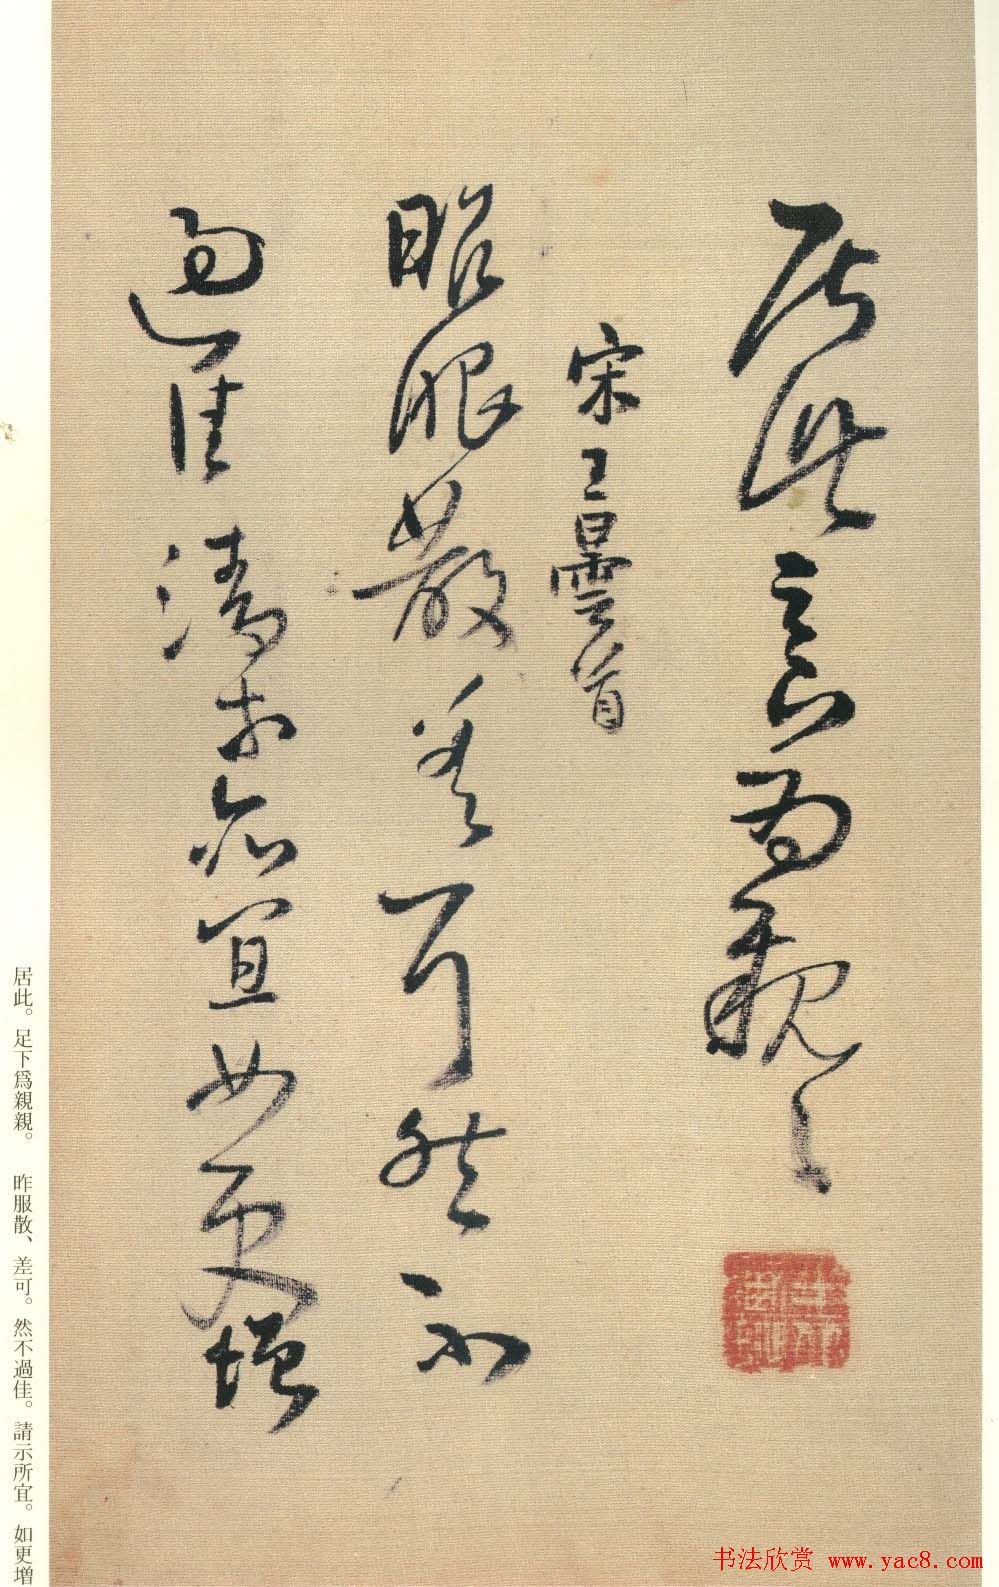 居此足下為親々
宋王曇首
昨服散差可然不
過佳請示所宜如更增
居此。足下爲親親。 昨服散、差可。然不過佳。請示所宜。如更增
书法欣赏 www.yac8.com